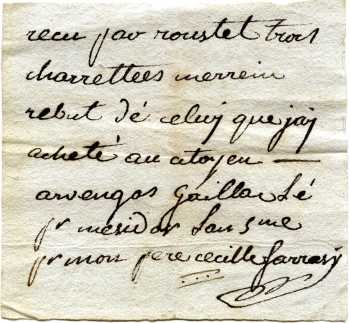 recu par roustet trois
charrettees merrein
rebut dé celuy que jay
acheté au citoyen —
arvengas Gaillac Lé
pr mesidor Lan 5me
pr mon pere cecille farrasy